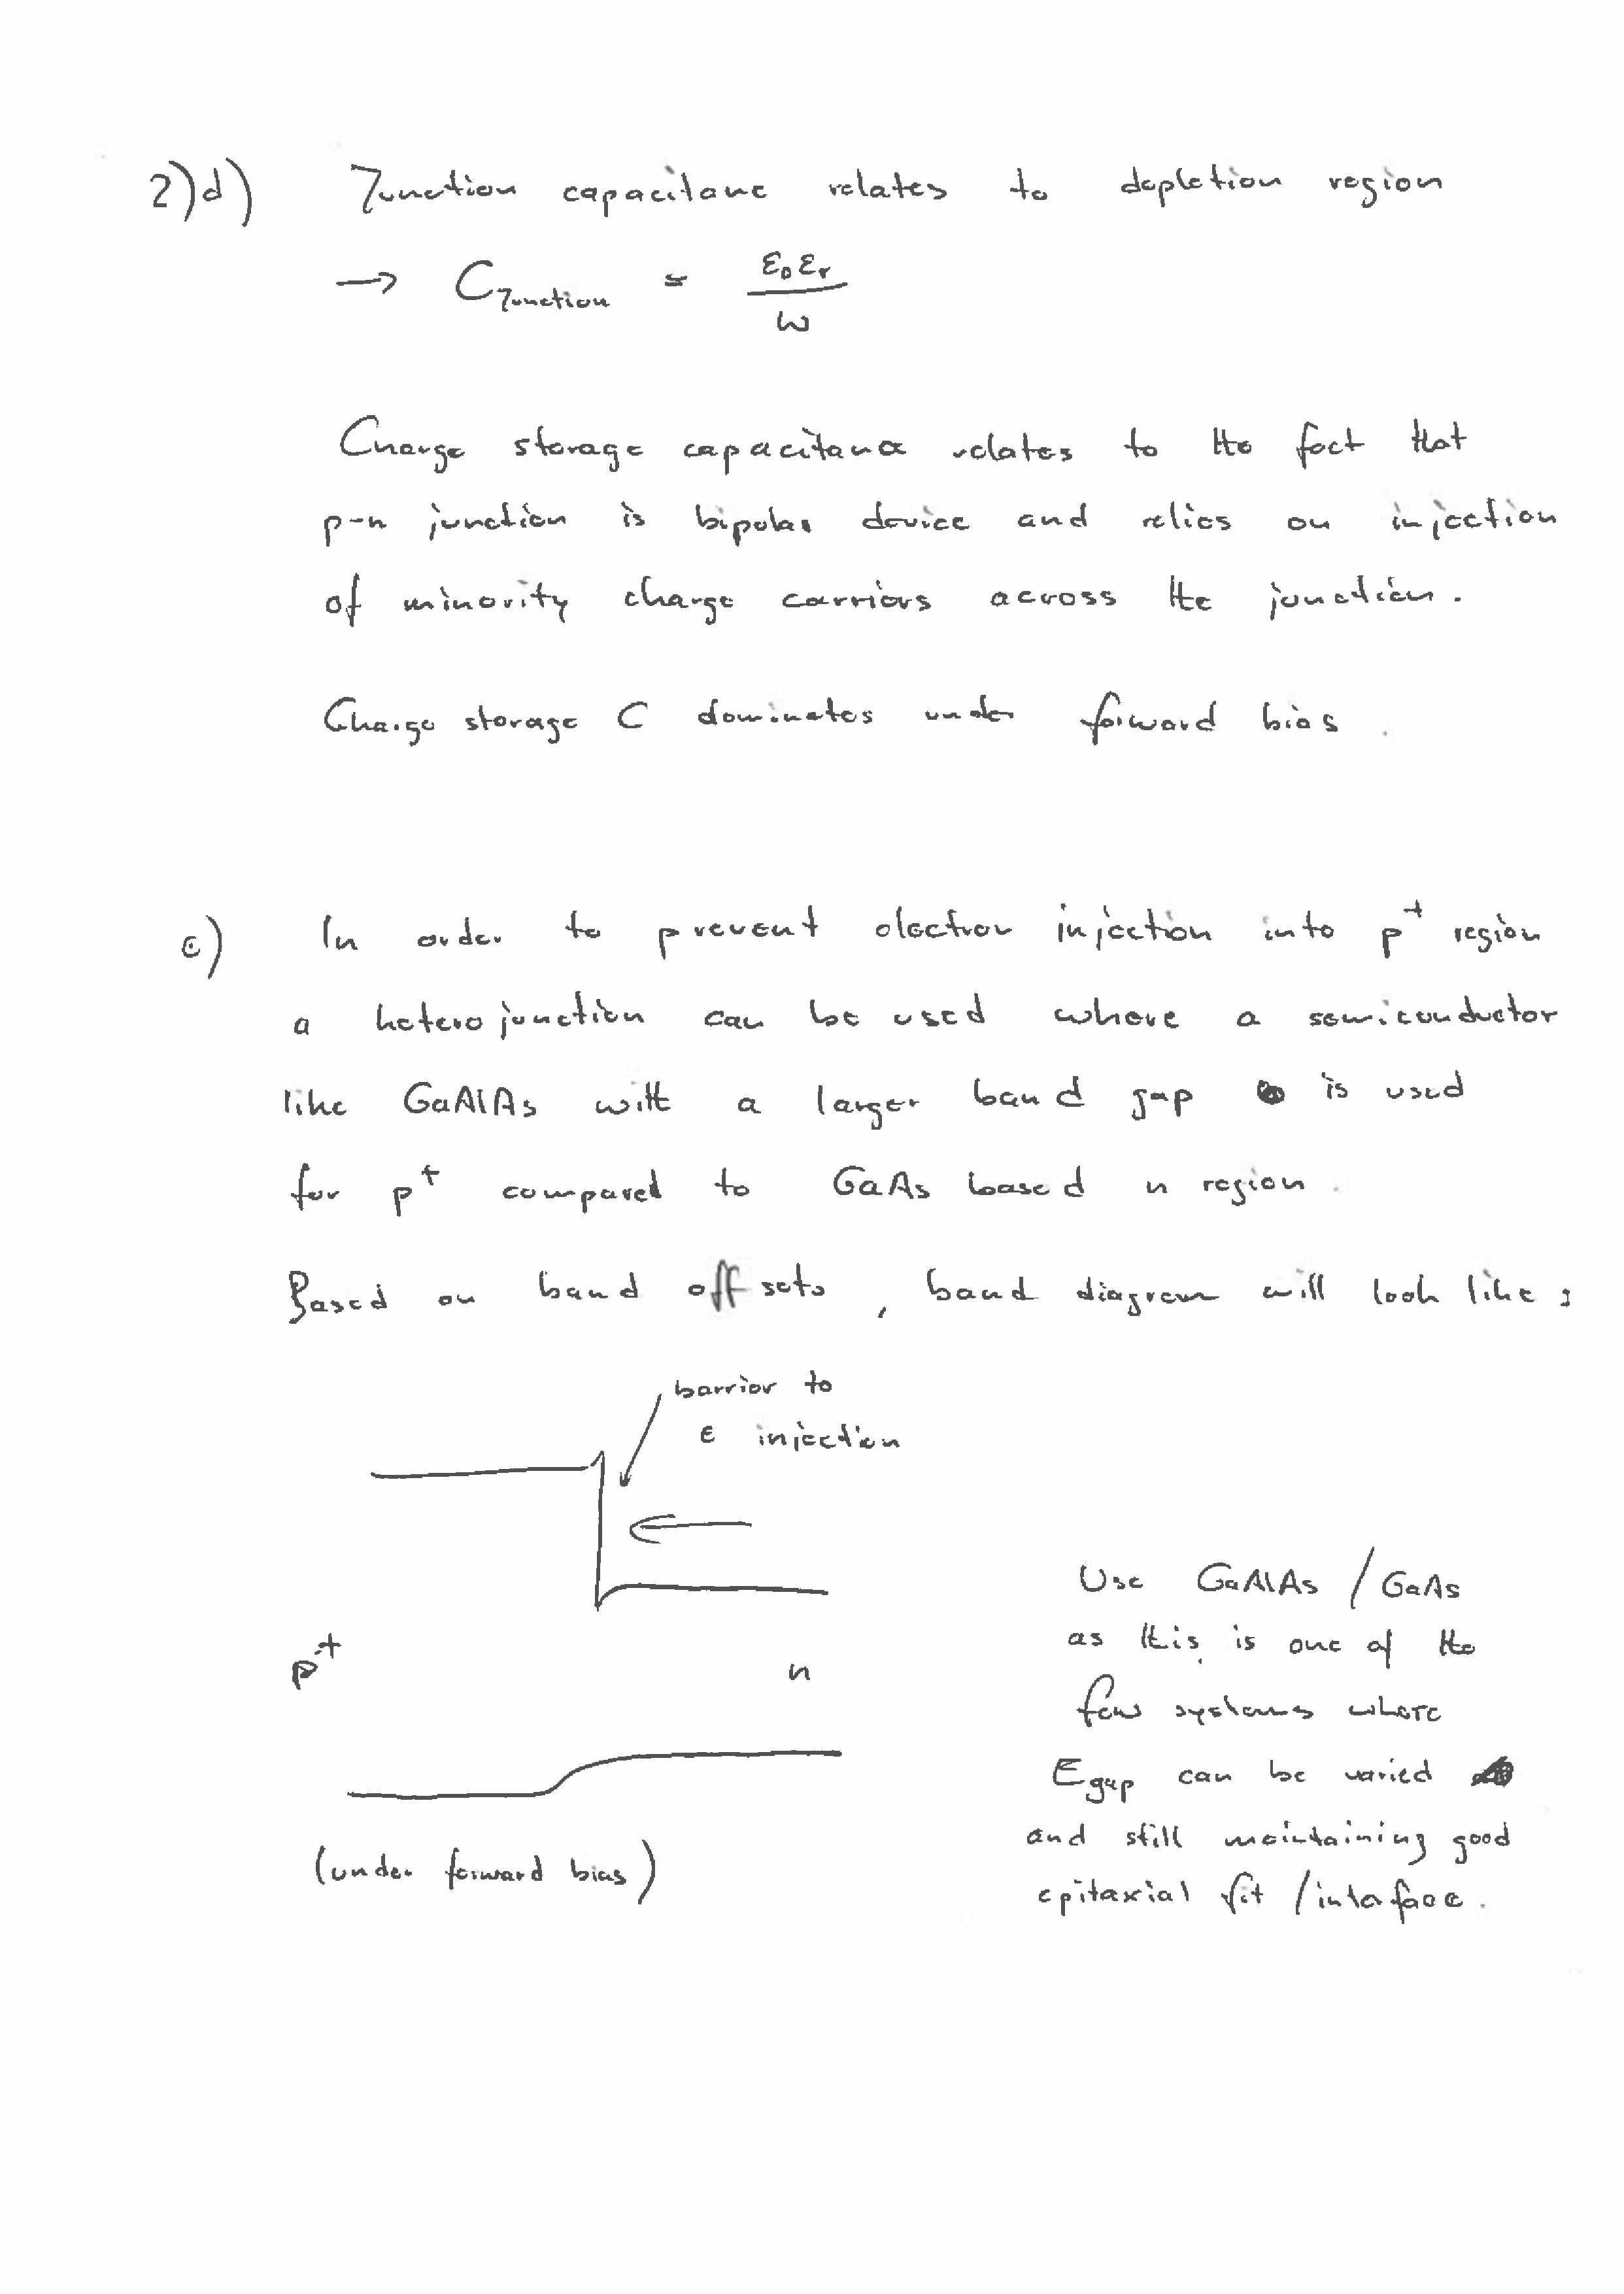 2)d) Junction capacitance relates to depletion region
→ C_Junction = ε₀εᵣ / W
Charge storage capacitance relates to the fact that
p-n junction is bipolar device and relies on injection
of minority charge carriers across the junction.
Charge storage C dominates under forward bias.
e) In order to prevent electron injection into p⁺ region
a heterojunction can be used where a semiconductor
like GaAlAs with a larger band gap is used
for p⁺ compared to GaAs based n region.
Based on band offsets, band diagram will look like:
barrier to
e injection
p⁺ n
(under forward bias)
Use GaAlAs / GaAs
as this is one of the
few systems where
E_gap can be varied
and still maintaining good
epitaxial fit / interface.